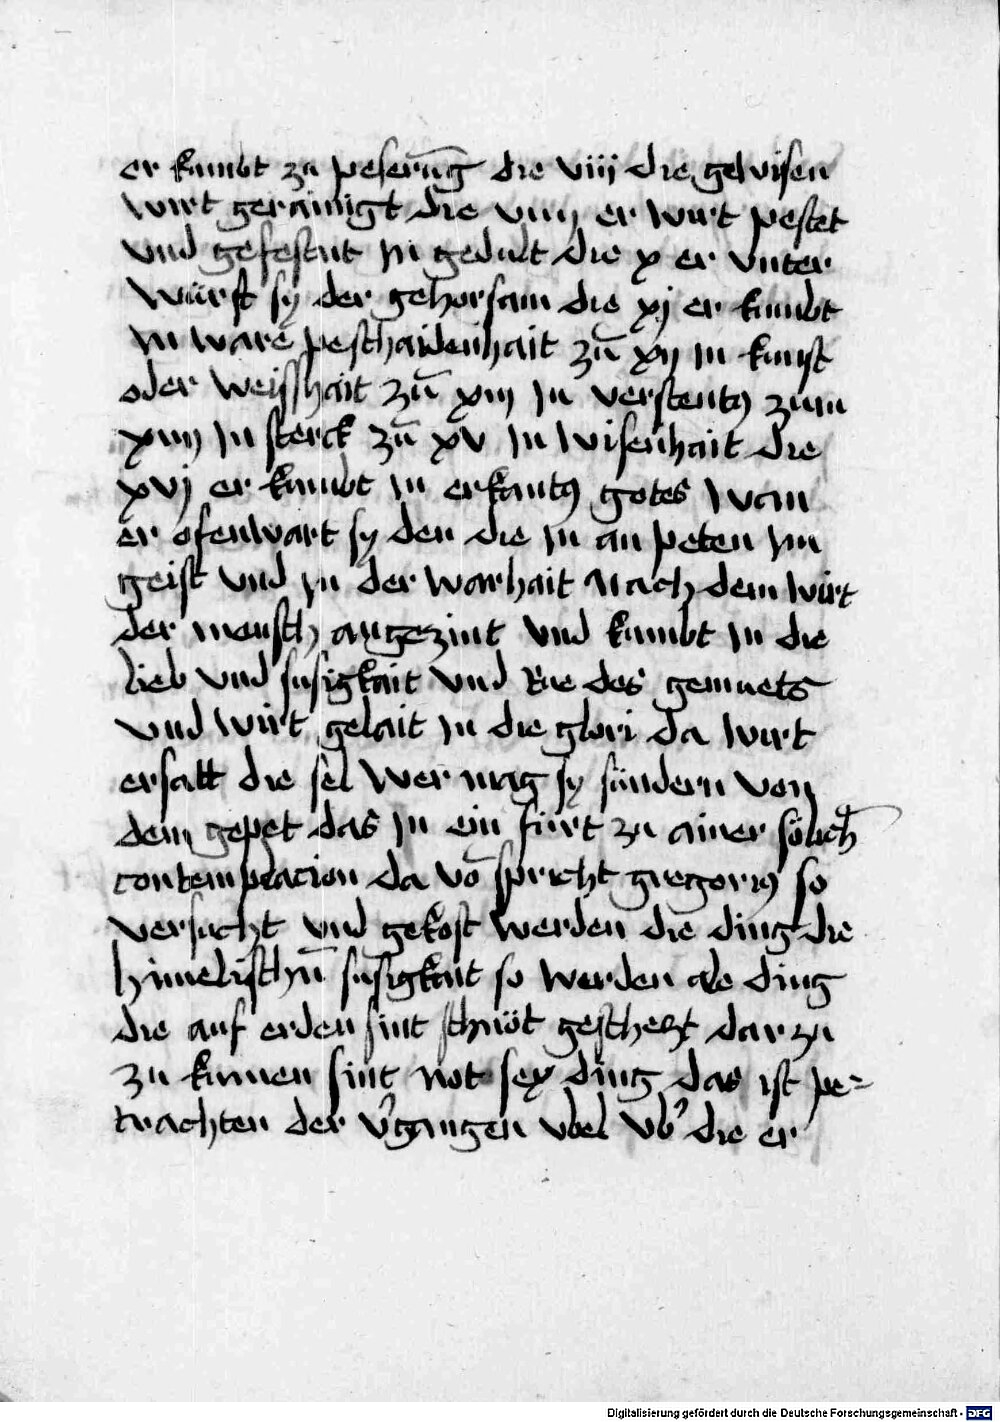 er kumbt zu peserūg die viij die gewisen
wirt gerainigt die viiij er wirt pestet
vnd gefestnt in gedult die x er vnter
würft sy der gehorsam die xj er kumbt
in ware peschaidenhait zū xij in kunst
oder weisshait zū xiij in verstentꝰ zum
xiiij in sterck zū xv in wisenhait die
xvj er kumbt in erkantꝰ gotes wan
er ofenwart sy den die in an peten im
geist vnd in der warhait Nach dem wirt
der mensch angezint vnd kumbt in die
lieb vnd susigkait vnd Rue des gemuets
vnd wirt gelait in die glori da wirt
ersatt die sel wer mag sy sundern von
dem gepet das in ein fürt zu ainer sölich
contemplacion da vō spricht gregoriꝰ so
versucht vnd gekost werden die ding die
himelischn̄ susigkait so werden ale ding
die auf erden sint schnöt geschetzt dar zu
zu kumen sint not sex ding das ist pe-
trachten der v̓gangen vbel vb̓ die er
Digitalisierung gefördert durch die Deutsche Forschungsgemeinschaft - DFG